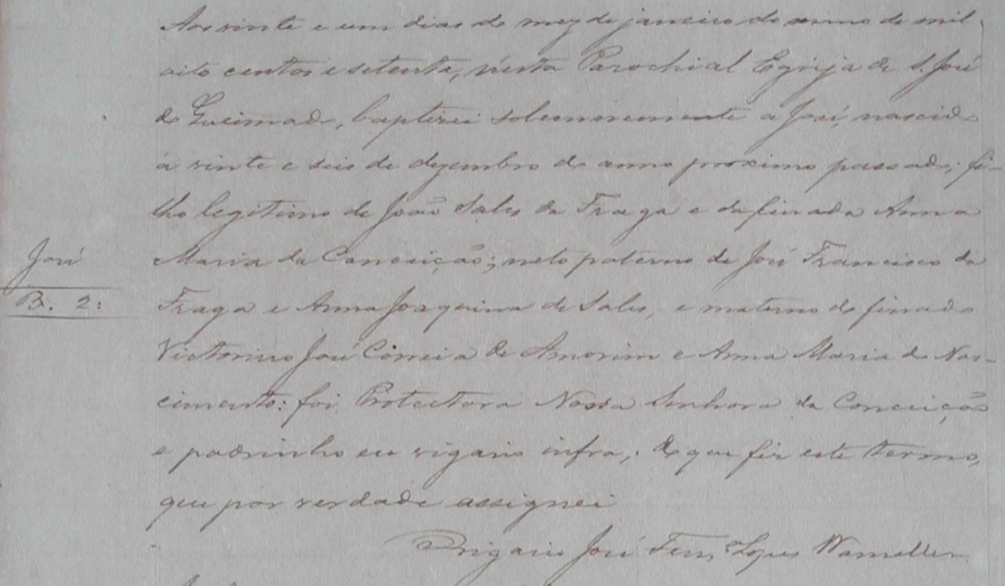 Aos vinte e um dias do mez de janeiro do anno de mil
oito centos e setenta, nesta Parochial Egrija de S. José
de Gueimada, baptizei solemnemente a José, nascido
a vinte e seis de dezembro do anno proximo passado; fi-
lho legitimo de João Sales da Fraga e da finada Anna
José
Maria da Conceição; neto paterno de José Francisco da
B. 2:
Fraga e Anna Joaquina de Sales, e materno do finado
Victorino José Correia de Amorim e Anna Maria do Nas-
cimento: foi Protectora Nossa Senhora da Conceição
e padrinho eu vigario infra; de que fiz este termo,
que por verdade assignei
O vigario José Lopes